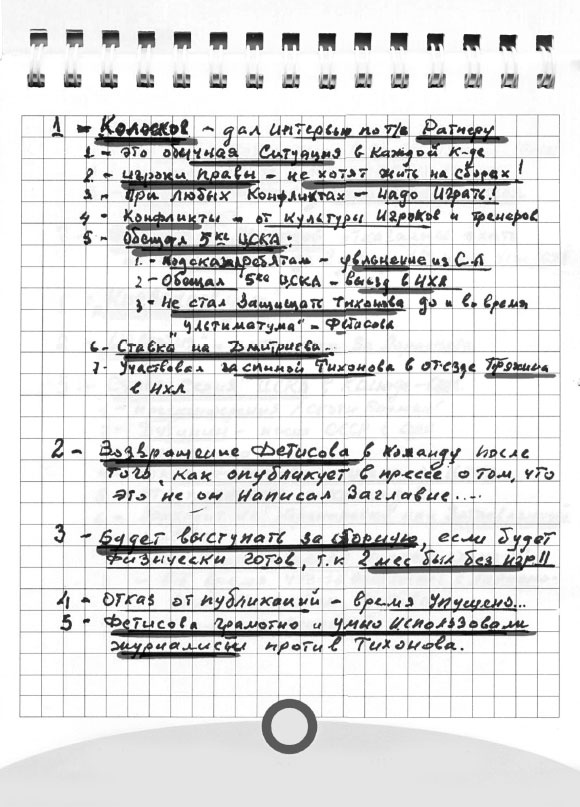 1 - Колосков - дал интервью по т/в Ратнеру
1 - Это обычная ситуация в каждой к-де
2 - игроки правы - не хотят жить на сборах!
3 - При любых Конфликтах - Надо Играть!
4 - Конфликты - от культуры Игроков и тренеров
5 - Обещал 5ке ЦСКА:
1 - ребятам - увльнение из С.А
2 - Обещал 5ке ЦСКА - выезд в НХЛ
3 - Не стал Защищать Тихонова до и во время
"Ультиматума" - Фетисова
6 - Ставка на Дмитриева.
7 - Участвовал за спиной Тихонова в отъезде Пряхина
в НХЛ
2 - Возвращение Фетисова в Команду после
того, как опубликует в прессе о том, что
это не он Написал Заглавие....
3 - Будет выступать за сборную, если будет
Физически готов, т.к 2 мес был без игр!!
4 - Отказ от публикаций - время Упущено...
5 - Фетисова грамотно и умно Использовали
журналисты против Тихонова.